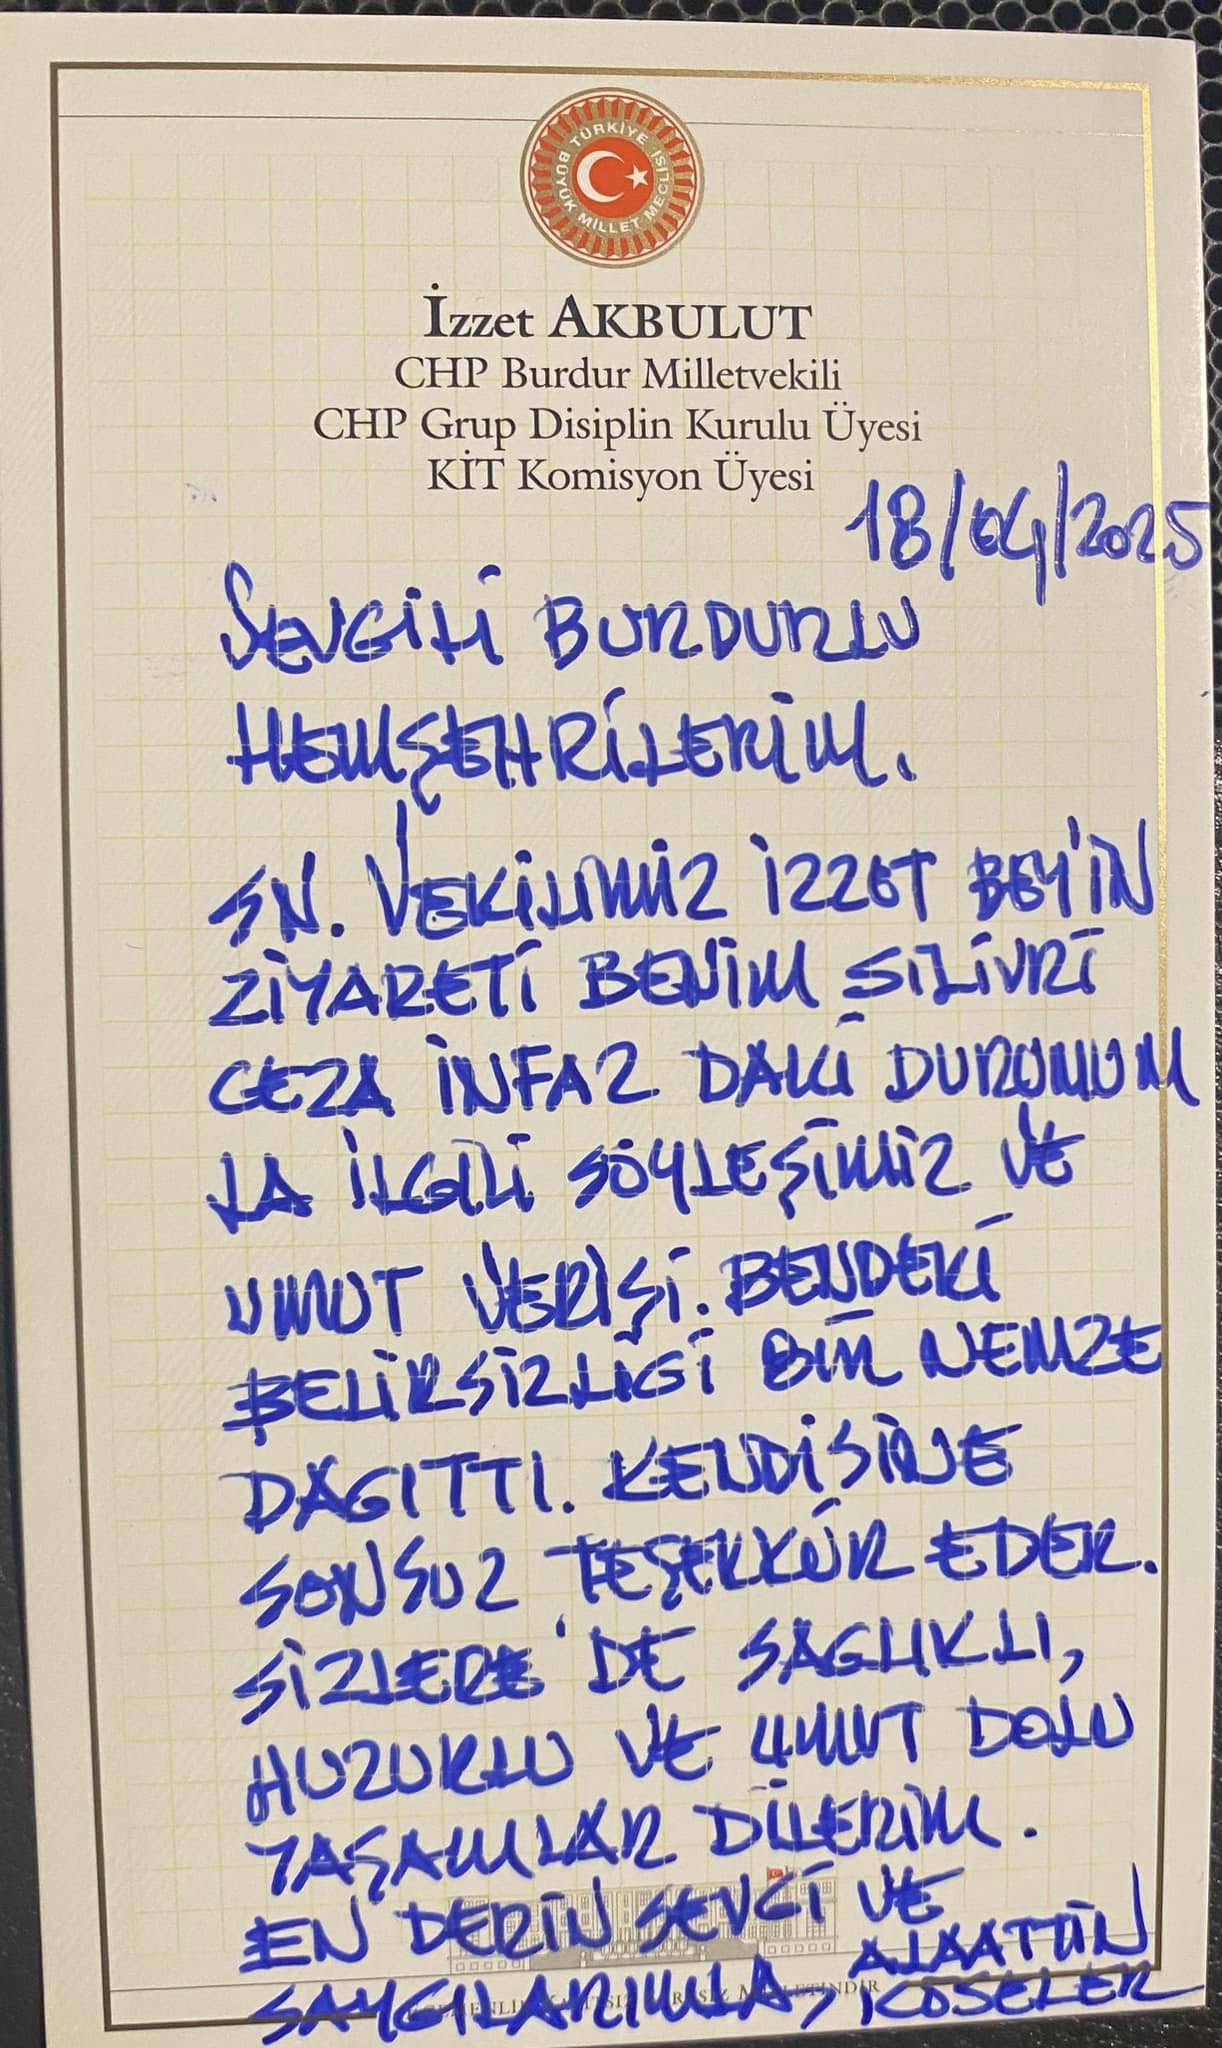 TÜRKİYE BÜYÜK MİLLET MECLİSİ
İzzet AKBULUT
CHP Burdur Milletvekili
CHP Grup Disiplin Kurulu Üyesi
KİT Komisyon Üyesi
18/04/2025
SEVGİLİ BURDURLU
HEMŞEHRİLERİM.
SN. VEKİLİMİZ İZZET BEY'İN
ZİYARETİ BENİM SİLİVRİ
CEZA İNFAZ DAKİ DURUMUM
LA İLGİLİ SÖYLEŞİMİZ VE
UMUT VERİŞİ. BENDEKİ
BELİRSİZLİĞİ BİR NEMZE
DAGITTI. KENDİSİNE
SONSUZ TEŞEKKÜR EDER.
SİZLERE'DE SAGLIKLI,
HUZURLU VE UMUT DOLU
YAŞAMLAR DİLERİM.
EN DERİN SEVGİ VE
SAYGILARIMLA,
ALAATTİN
KÖSELER